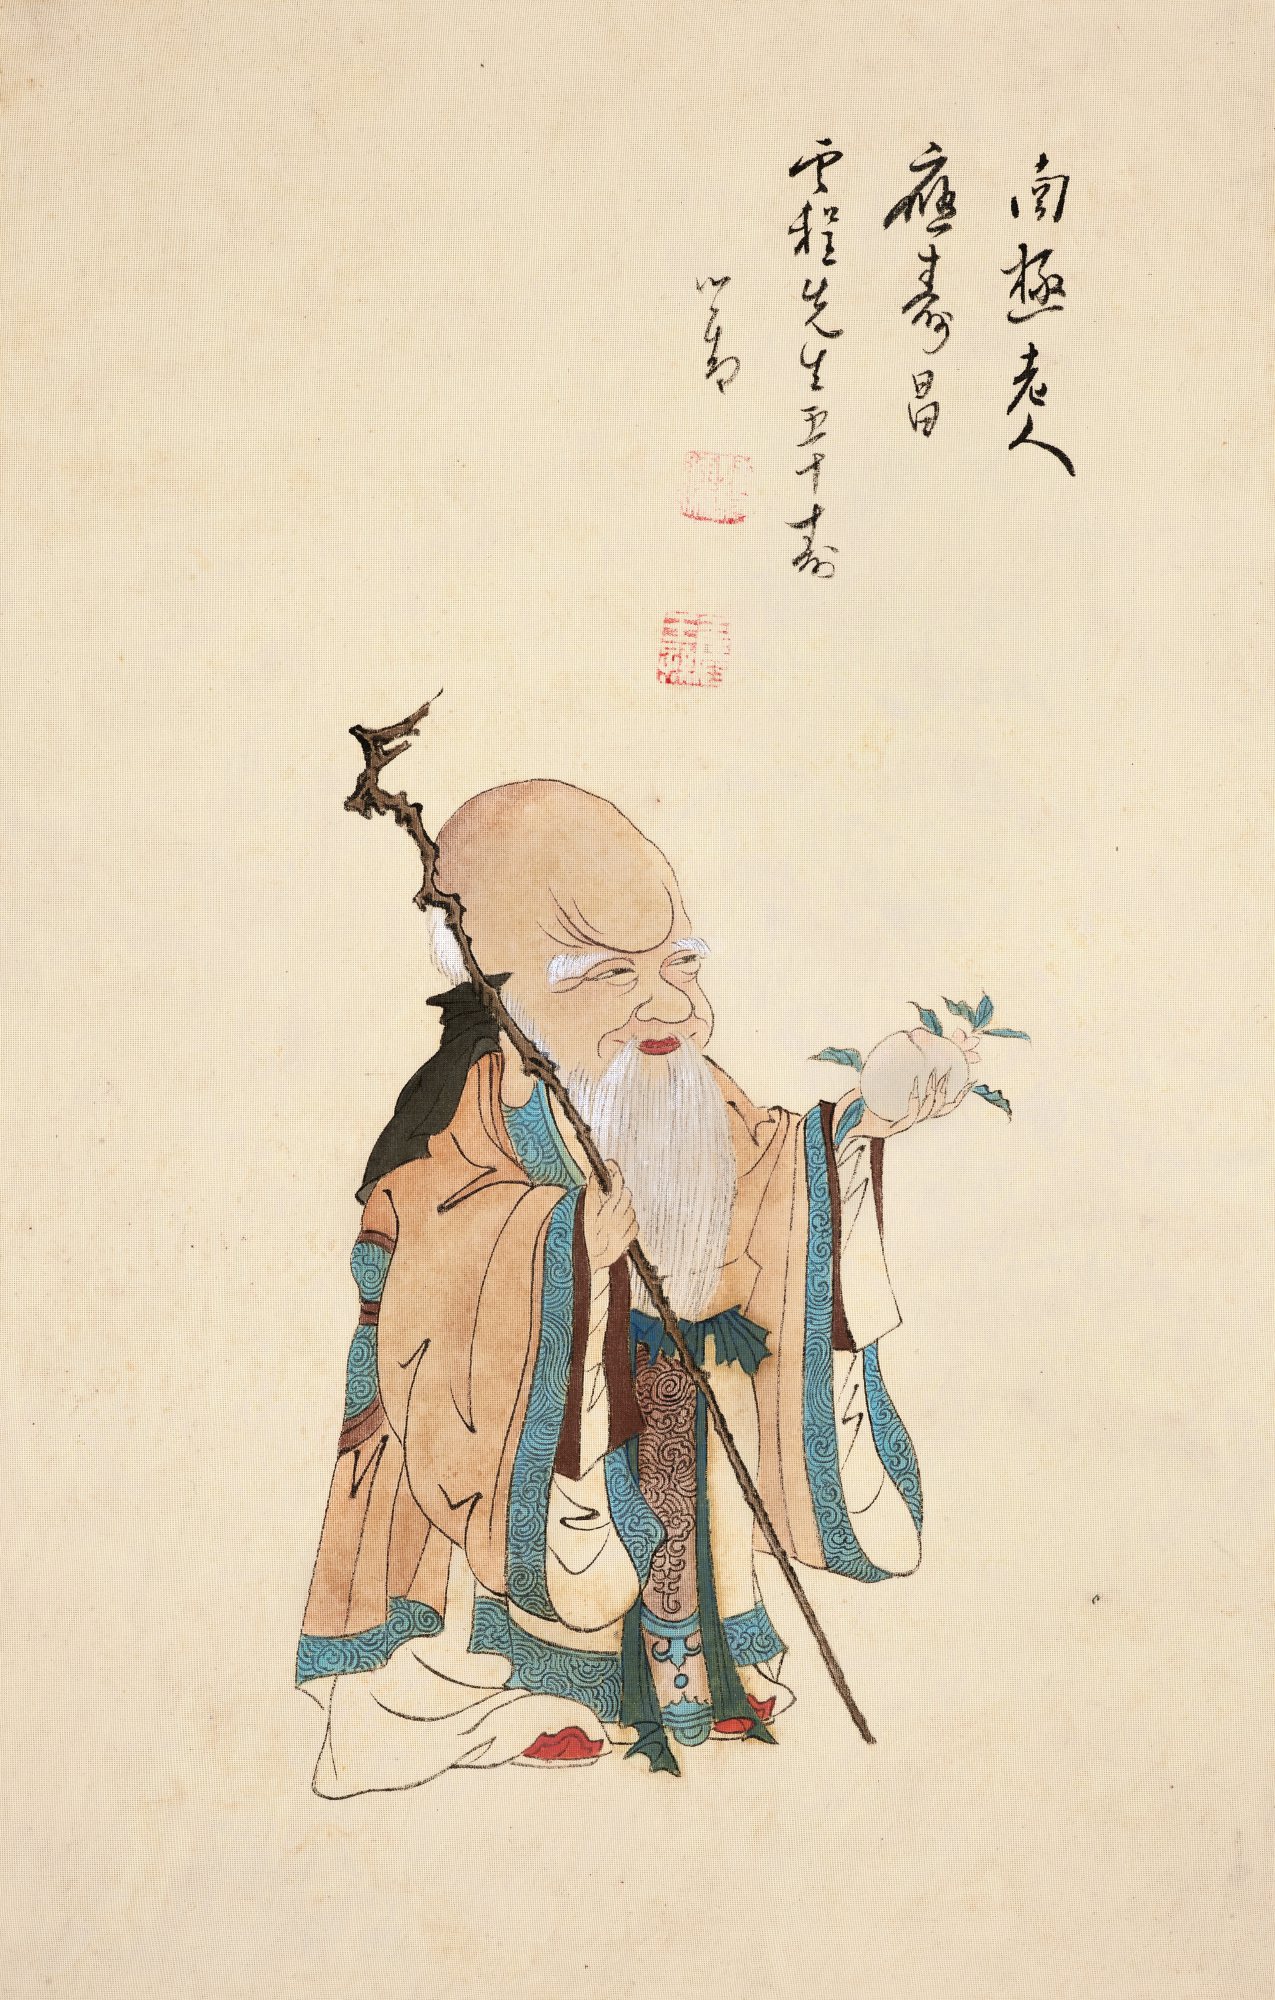 南極老人
應壽昌
雲程先生五十壽
心畬